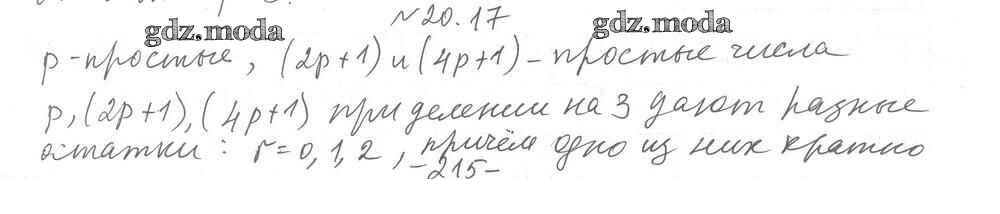 №20.17
gdz.moda gdz.moda
p-простые, (2p+1) и (4p+1) - простые числа
p, (2p+1), (4p+1) при делении на 3 дают разные
остатки: r=0, 1, 2, причём одно из них кратно
-215-